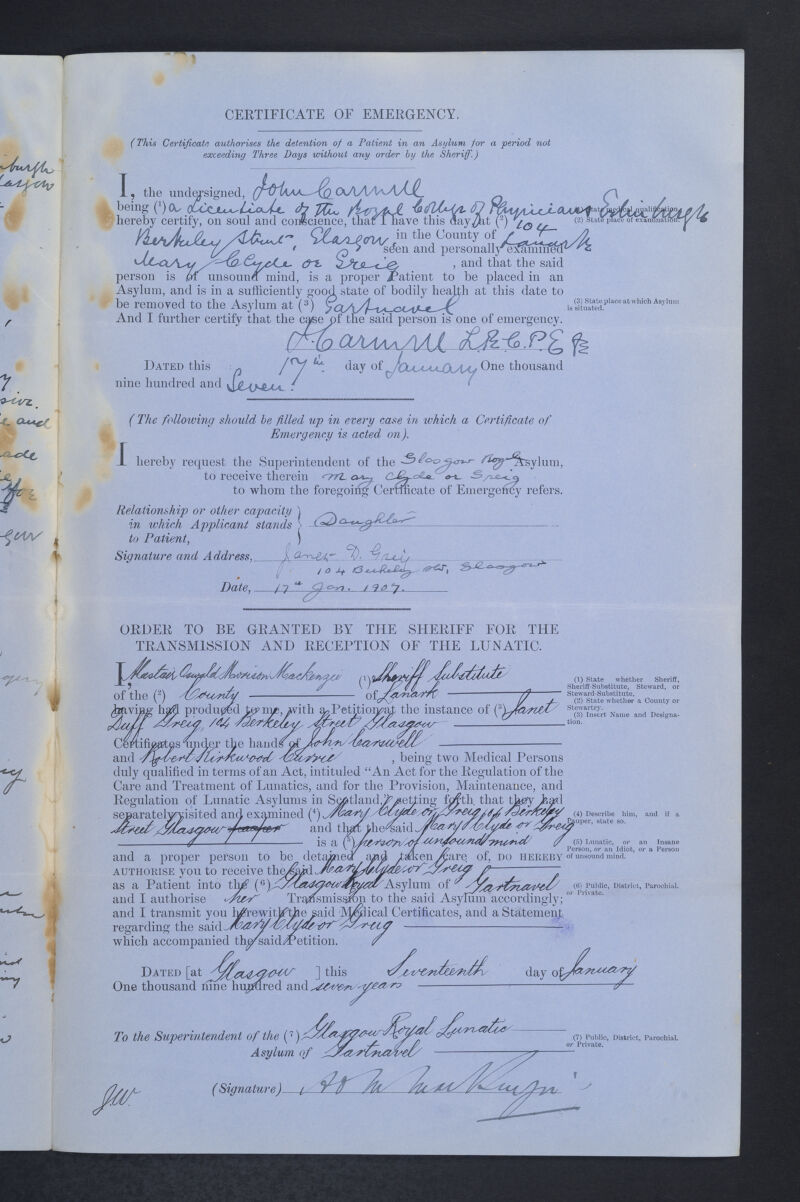 CERTIFICATE OF EMERGENCY.
(This Certificate authorises the detention of a Patient in an Asylum for a period not
exceeding Three Days without any order by the Sheriff.)
I, the undersigned, John Carswell
being (1) a Licentiate of the Royal College of Physicians Edinburgh
(1) State medical qualification.
hereby certify, on soul and conscience, that I have this day at (2) 104
(2) State place of examination.
Berkeley Street, Glasgow, in the County of Lanark
seen and personally examined
Mary Clyde or Greig, and that the said
person is of unsound mind, is a proper Patient to be placed in an
Asylum, and is in a sufficiently good state of bodily health at this date to
be removed to the Asylum at (3) Gartnavel
(3) State place at which Asylum
is situated.
And I further certify that the case of the said person is one of emergency.
J. Carswell L.R.C.P.E &c
DATED this 17th day of January One thousand
nine hundred and Seven.
(The following should be filled up in every case in which a Certificate of
Emergency is acted on).
I hereby request the Superintendent of the Glasgow Royal Asylum,
to receive therein Mary Clyde or Greig
to whom the foregoing Certificate of Emergency refers.
Relationship or other capacity
in which Applicant stands } Daughter
to Patient,
Signature and Address, Janet D. Greig
104 Berkeley St, Glasgow
Date, 17th Jan. 1907.
ORDER TO BE GRANTED BY THE SHERIFF FOR THE
TRANSMISSION AND RECEPTION OF THE LUNATIC.
I, Alastair Oswald Morison Mackenzie (1) Sheriff Substitute
(1) State whether Sheriff,
Sheriff-Substitute, Steward, or
Steward-Substitute.
of the (2) County of Lanark
(2) State whether a County or
Stewartry.
having had produced to me, with a Petition at the instance of (3) Janet
(3) Insert Name and Designa-
tion.
Duff Greig, 104 Berkeley Street, Glasgow
Certificates under the hands of John Carswell
and Robert Kirkwood Currie, being two Medical Persons
duly qualified in terms of an Act, intituled "An Act for the Regulation of the
Care and Treatment of Lunatics, and for the Provision, Maintenance, and
Regulation of Lunatic Asylums in Scotland," setting forth that they had
separately visited and examined (4) Mary Clyde or Greig, 104 Berkeley
(4) Describe him, and if a
Pauper, state so.
Street Glasgow pauper and that the said Mary Clyde or Greig
is a (5) person of unsound mind
(5) Lunatic, or an Insane
Person, or an Idiot, or a Person
of unsound mind.
and a proper person to be detained and taken care of, DO HEREBY
AUTHORISE you to receive the said Mary Clyde or Greig
as a Patient into the (6) Glasgow Royal Asylum of Gartnavel
(6) Public, District, Parochial.
or Private.
and I authorise her Transmission to the said Asylum accordingly;
and I transmit you herewith the said Medical Certificates, and a Statement
regarding the said Mary Clyde or Greig
which accompanied the said Petition.
DATED [at Glasgow ] this Seventeenth day of January
One thousand nine hundred and seven years
To the Superintendent of the (7) Glasgow Royal Lunatic
(7) Public, District, Parochial.
or Private.
Asylum of Gartnavel
(Signature) A O M Mackenzie
J.W.